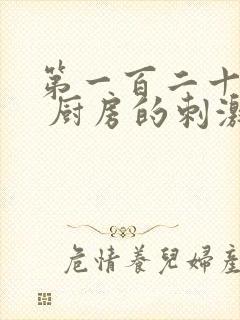 第一百二十
厨房的刺激
危情養兒婦產